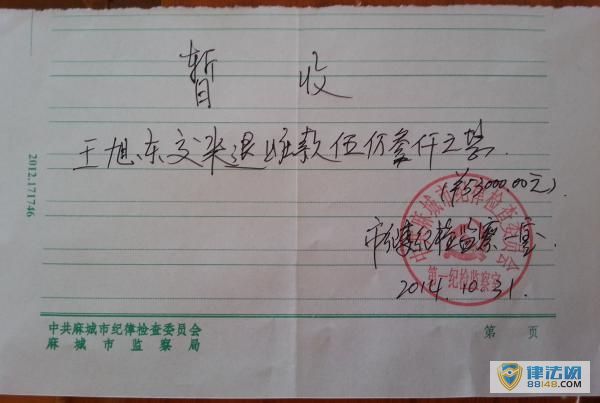 暂 收
王旭东交来退赃款伍万叁仟元整.
(¥53000.00元).
市纪委纪检监察一室
2014.10.31.
中共麻城市纪律检查委员会
第一纪检监察室
2012.171746
中共麻城市纪律检查委员会
麻城市监察局
第 页
律法网
88148.com